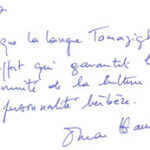 que la langue Tamazigh
effort qui garantet l
unité de la culture
personnalité berbère.